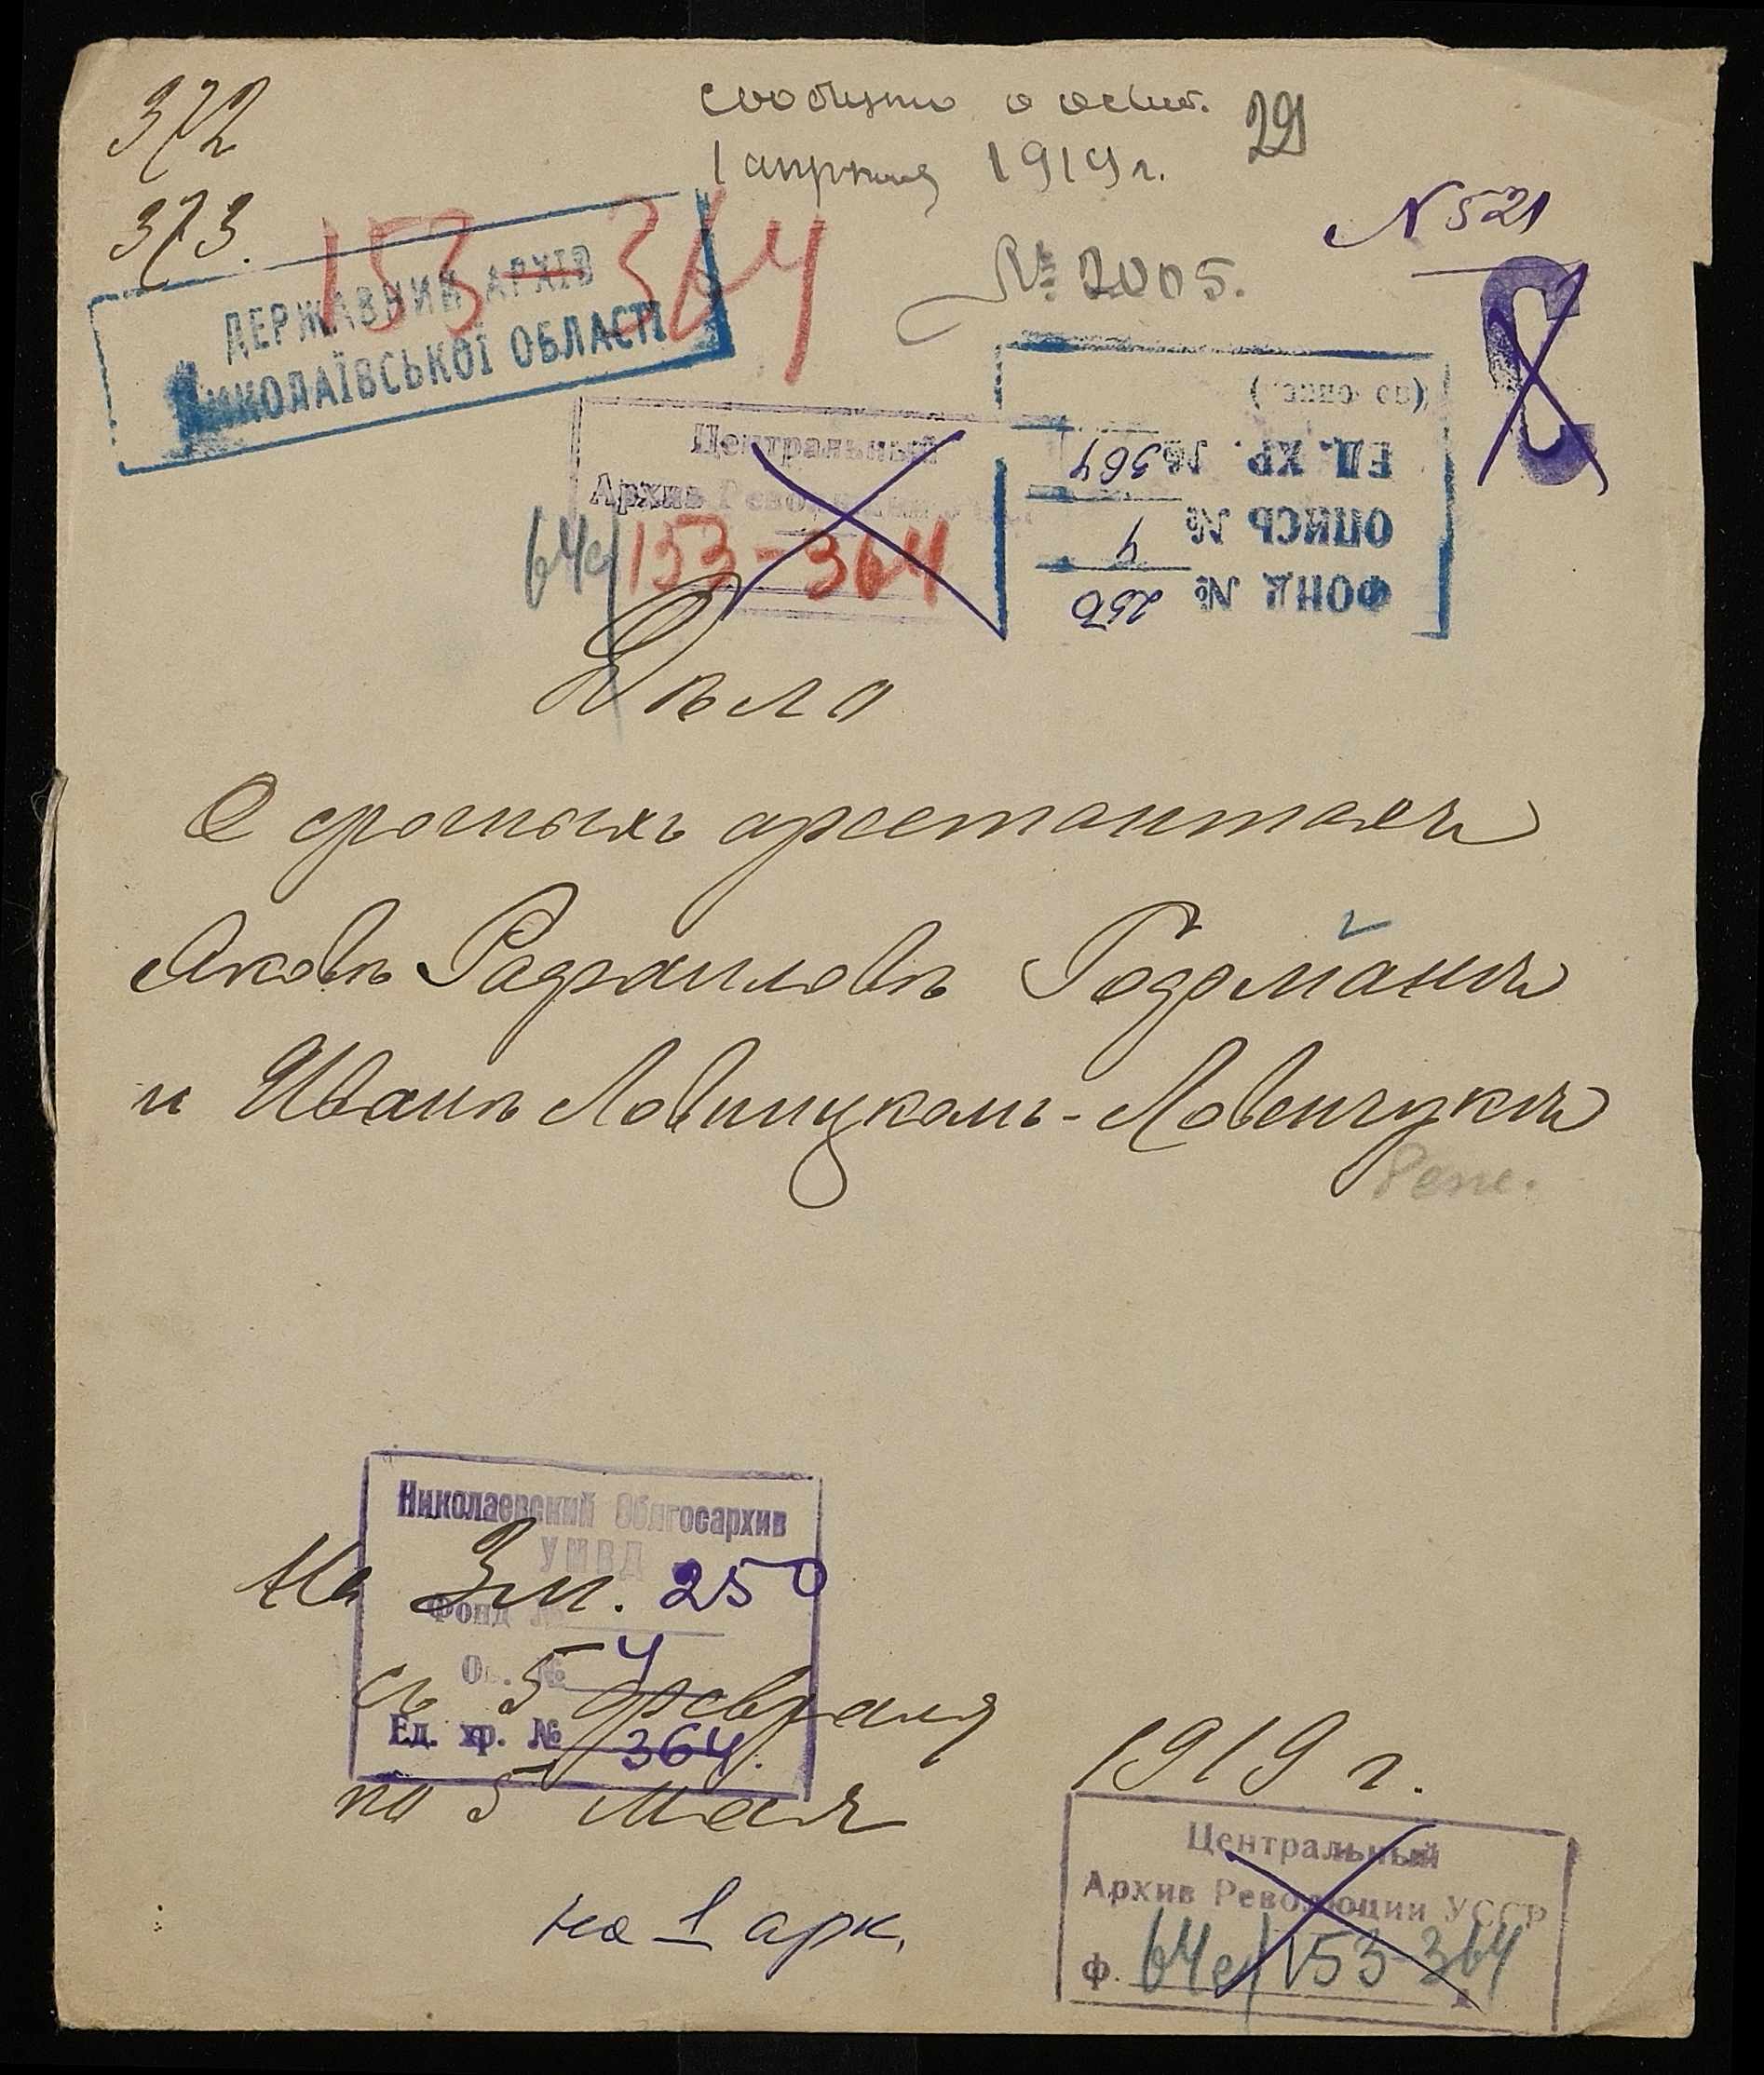 372
373.
сообщено о освоб.
1 апреля 1919 г.
29
N 521
№ 2005.
153-364
ДЕРЖАВНИЙ АРХІВ
МИКОЛАЇВСЬКОЇ ОБЛАСТІ
Центральный
Архив
64с/153-364
ФОНД № 250
ОПИСЬ № 4
ЕД. ХР. № 364
Дѣло
О срочныхъ арестантахъ
Яковѣ Рафаиловѣ Гофманъ
и Иванѣ Ловницкомъ-Ловенчукъ
Николаевский Облгосархив
УМВД
Фонд № 250
Оп. № 4
Ед. хр. № 364.
На 3 л.
съ 5 февраля
1919 г.
по 5 мая
на 1 арк.
Центральный
Архив Революции УССР
ф. 64с/153-364